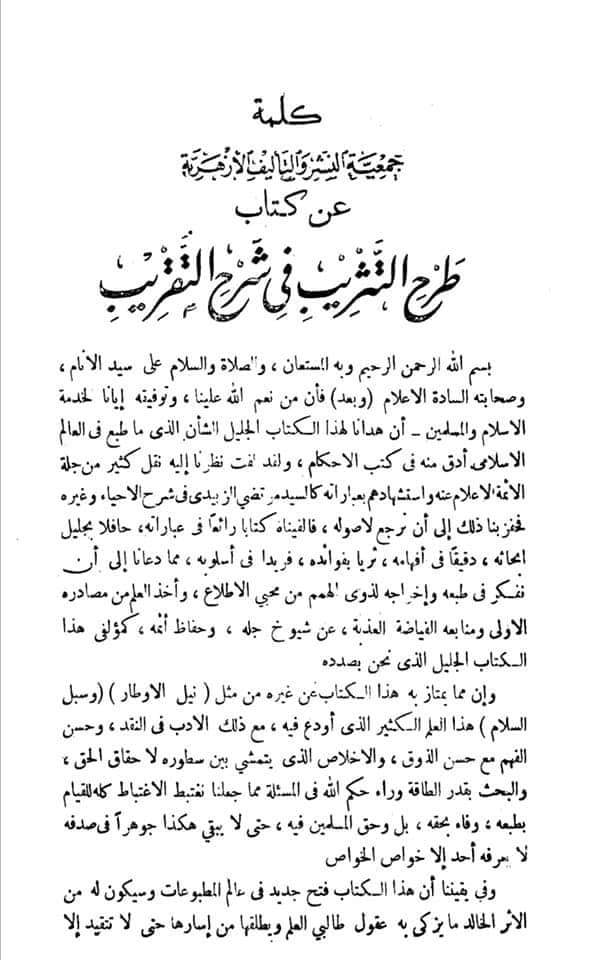 كلمة
جمعية النشر والتأليف الأزهرية
عن كتاب
طَرْحُ التَّثْرِيبِ فِي شَرْحِ التَّقْرِيبِ
بسم الله الرحمن الرحيم وبه المستعان ، والصلاة والسلام على سيد الأنام ،
وصحابته السادة الاعلام (وبعد) فأن من نعم الله علينا ، وتوفيقه إيانا لخدمة
الاسلام والمسلمين – أن هدانا لهذا الكتاب الجليل الشأن الذى ما طبع فى العالم
الاسلامى أدق منه فى كتب الاحكام ، ولقد لفت نظرنا إليه نقل كثير من جلة
الأئمة الاعلام عنه واستشهادهم بعباراته كالسيد مرتضي الزبيدى فى شرح الاحياء وغيره
فحفز بنا ذلك إلى أن نرجع لاصوله ، فالفيناه كتابا رائعا فى عباراته، حافلا بجليل
ابحاثه ، دقيقا فى أفهامه ، ثريا بفوائده ، فريدا فى أسلوبه ، مما دعانا إلى أن
نفكر فى طبعه وإخراجه لذوى الهمم من محبي الاطلاع ، وأخذ العلم من مصادره
الاولى ومنابعه الفياضة العذبة ، عن شيوخ جله ، وحفاظ أئمه ، كمؤلفى هذا
الكتاب الجليل الذى نحن بصدده
وإن مما يمتاز به هذا الكتاب عن غيره من مثل ( نيل الاوطار ) (وسبل
السلام ) هذا العلم الكثير الذى أودع فيه ، مع ذلك الادب فى النقد ، وحسن
الفهم مع حسن الذوق ، والاخلاص الذى يتمشي بين سطوره لا حقاق الحق ،
والبحث بقدر الطاقة وراء حكم الله فى المسئلة مما جعلنا نغتبط الاغتباط كله للقيام
بطبعه ، وفاء بحقه ، بل وحق المسلمين فيه ، حتى لا يبقي هكذا جوهراً فى صدفه
لا يعرفه أحد إلا خواص الخواص
وفي يقيننا أن هذا الكتاب فتح جديد فى عالم المطبوعات وسيكون له من
الاثر الخالد ما يزكى به عقول طالبي العلم ويطلقها من إسارها حتى لا تتقيد إلا